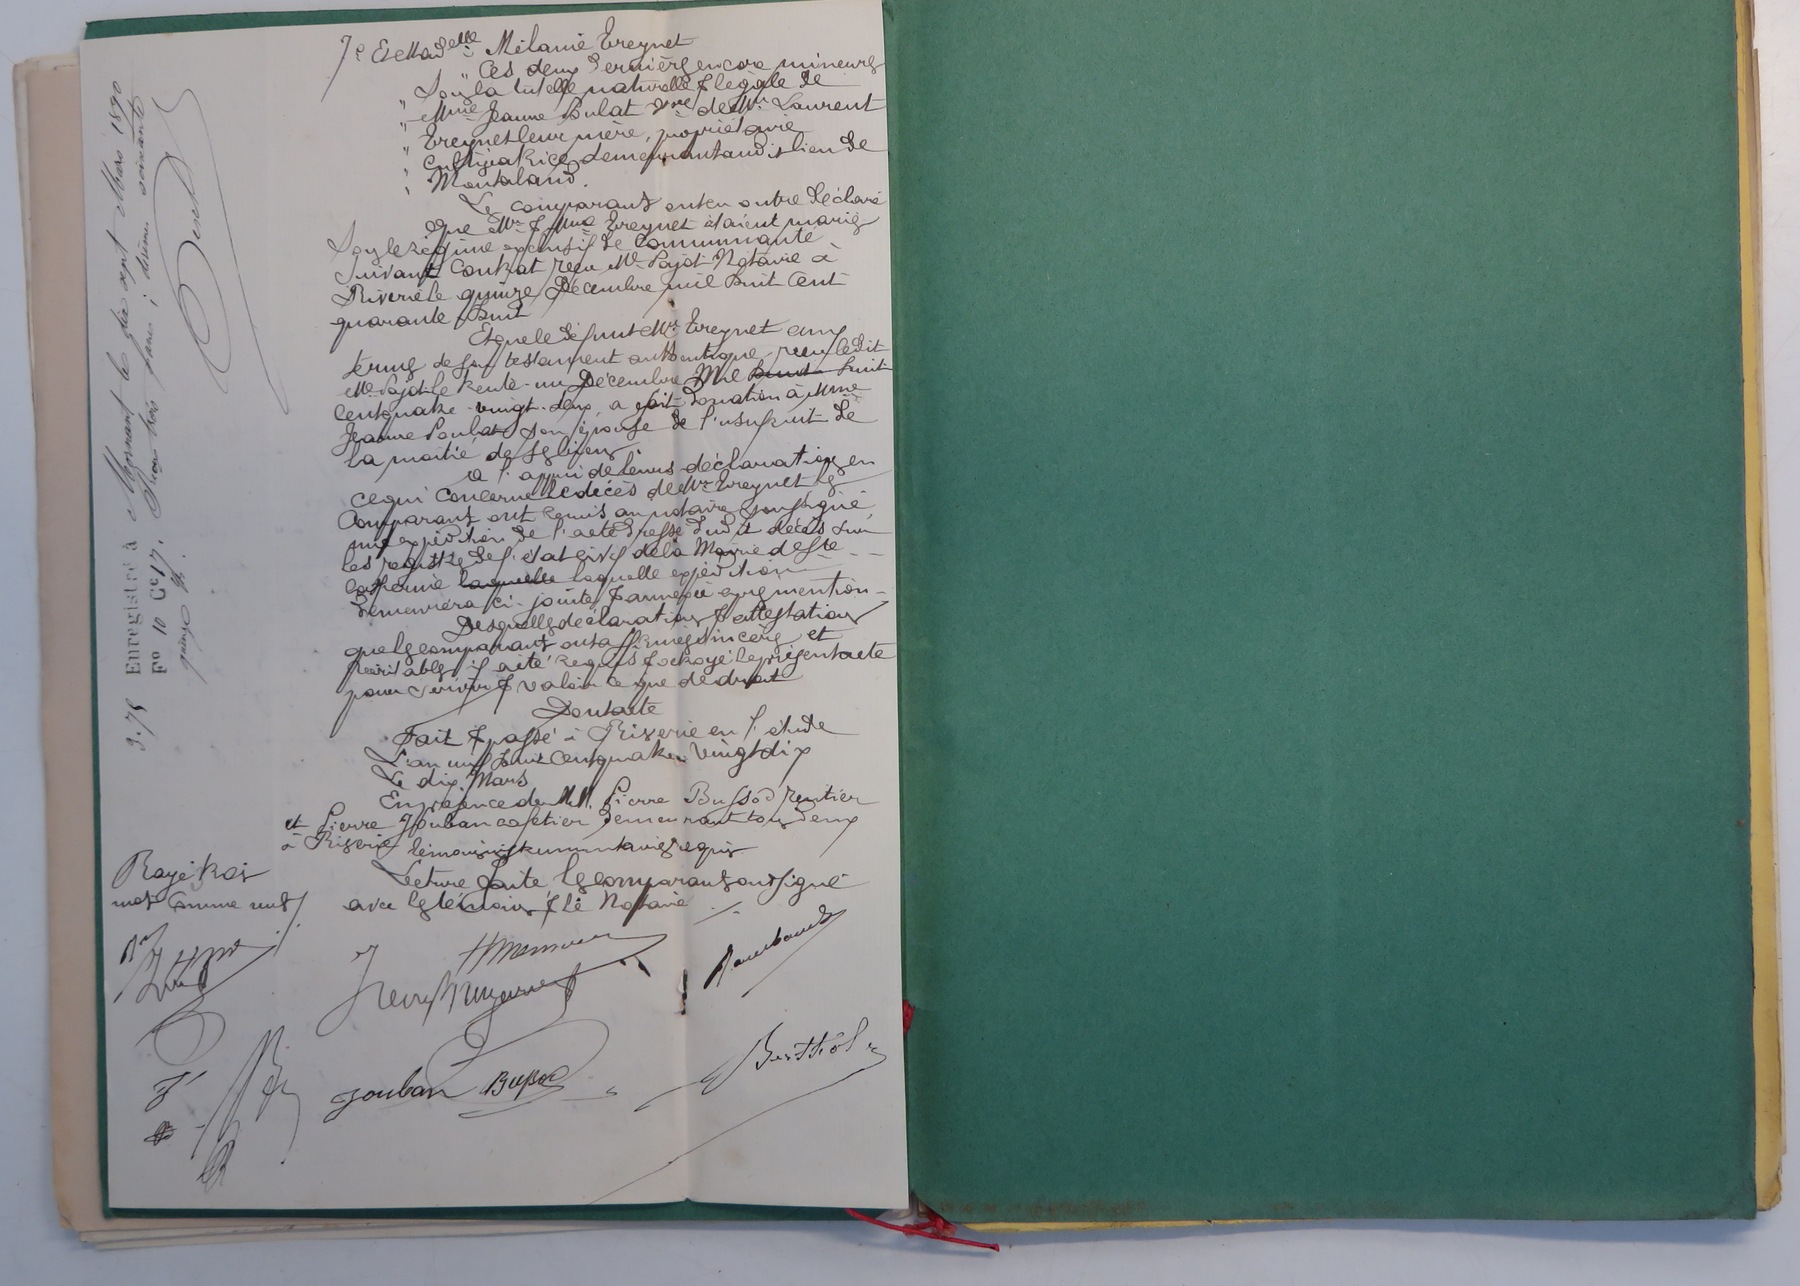 7º Et Mad elle Mélanie Treynet
" Ces deux derniers encore mineurs
" Sous la tutelle naturelle & légale de
" Mme Jeanne Poulat Vve de Mr Laurent
" Treynet leur mère, propriétaire
" cultivatrice demeurant audit lieu de
" Montaland.
Les comparants ont en outre déclaré
que Mr & Mme Treynet étaient mariés
Sous le régime exclusif de Communauté
suivant Contrat reçu Me Pojot Notaire à
Riverie le quinze Décembre mil huit Cent
quarante huit
Et que le défunt Mr Treynet aux
termes de son testament authentique reçu ledit
Me Pojot le trente-un Décembre Mil huit
Cent quatre-vingt-deux, a fait donation à Mme
Jeanne Poulat son épouse de l'usufruit de
la moitié de ses biens.
A l'appui de leurs déclarations en
ce qui concerne le décès de Mr Treynet les
Comparants ont remis au notaire soussigné,
une expédition de l'acte dressé dudit décès sur
les registres de l'état civil de la Mairie de Ste
Catherine laquelle laquelle expédition
demeurera ci-jointe & annexée après mention-
Desquelles déclarations & attestations
que les comparants ont affirmées sincères et
véritables il a été requis & octroyé le présent acte
pour servir & valoir ce que de droit
Dont acte
Fait & passé à Riverie en l'étude
L'an mil huit Cent quatre Vingt dix
Le dix Mars
En présence de MM. Pierre Bussod rentier
et Pierre Jouban cafetier demeurant tous deux
à Riverie témoins instrumentaires requis
Lecture faite les comparants ont signé
avec les témoins & le Notaire
Rayé trois
mots comme nuls
Jouban Bussod
Berthol
Enregistré à Mornant le dix sept Mars 1890
Fº 10 Cº 17. Reçu trois francs; décimes soixante
quinze cs.
3.75